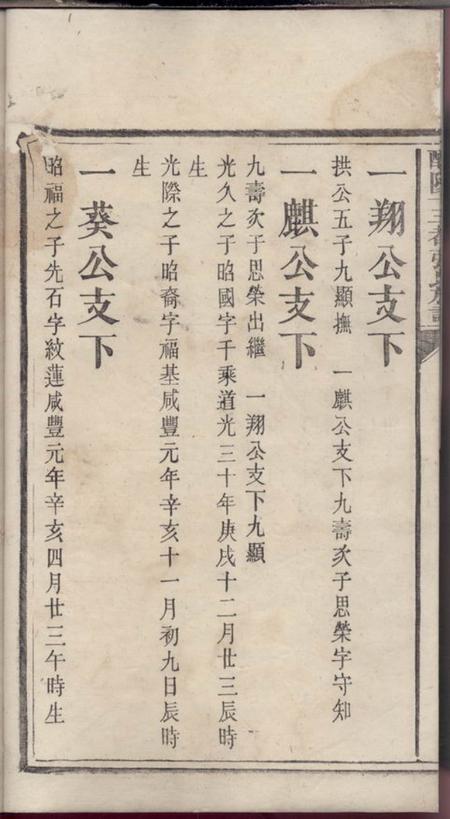 一翔公支下
拱公五子九顯撫　一麒公支下九壽次子思榮字守知
一麒公支下
九壽次子思榮出繼　一翔公支下九顯
光久之子昭國字千乘道光三十年庚戌十二月廿三辰時
生
光際之子昭裔字福基咸豐元年辛亥十一月初九日辰時
生
一葵公支下
昭福之子先石字紋蓮咸豐元年辛亥四月廿三午時生